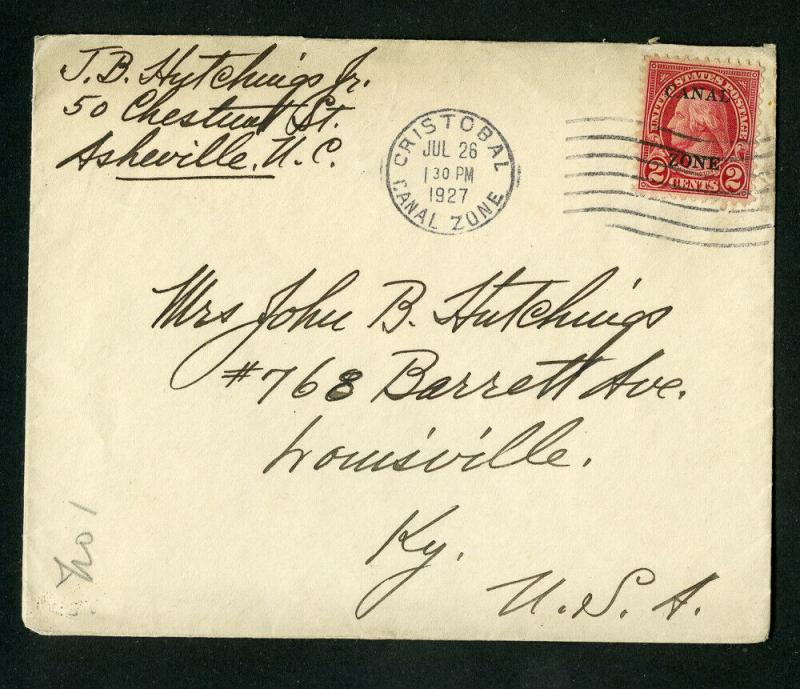 J. B. Hutchings Jr.
50 Chestnut St.
Asheville, N. C.
CRISTOBAL
JUL 26
1 30 PM
1927
CANAL ZONE
UNITED STATES POSTAGE
CANAL
ZONE
2 CENTS 2
Mrs John B. Hutchings
#768 Barrett Ave.
Louisville.
Ky.
U. S. A.